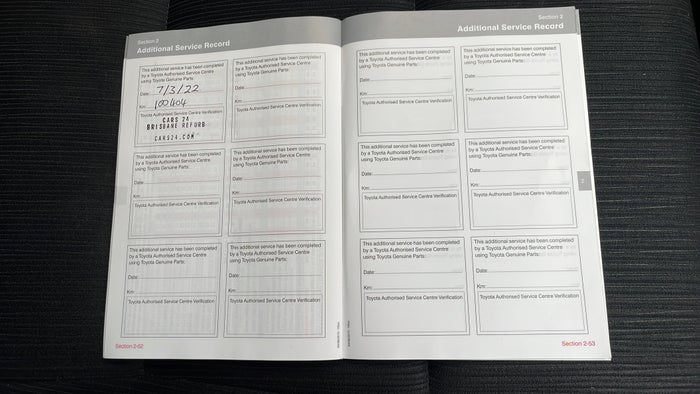 Section 2
Additional Service Record
This additional service has been completed
by a Toyota Authorised Service Centre
using Toyota Genuine Parts:
Date: 7/3/22
Km: 100404
Toyota Authorised Service Centre Verification
CARS 24
BRISBANE REFURB
CARS24.COM
This additional service has been completed
by a Toyota Authorised Service Centre
using Toyota Genuine Parts:
Date:
Km:
Toyota Authorised Service Centre Verification
This additional service has been completed
by a Toyota Authorised Service Centre
using Toyota Genuine Parts:
Date:
Km:
Toyota Authorised Service Centre Verification
This additional service has been completed
by a Toyota Authorised Service Centre
using Toyota Genuine Parts:
Date:
Km:
Toyota Authorised Service Centre Verification
This additional service has been completed
by a Toyota Authorised Service Centre
using Toyota Genuine Parts:
Date:
Km:
Toyota Authorised Service Centre Verification
This additional service has been completed
by a Toyota Authorised Service Centre
using Toyota Genuine Parts:
Date:
Km:
Toyota Authorised Service Centre Verification
Section 2-52
Section 2
Additional Service Record
This additional service has been completed
by a Toyota Authorised Service Centre
using Toyota Genuine Parts:
Date:
Km:
Toyota Authorised Service Centre Verification
This additional service has been completed
by a Toyota Authorised Service Centre
using Toyota Genuine Parts:
Date:
Km:
Toyota Authorised Service Centre Verification
This additional service has been completed
by a Toyota Authorised Service Centre
using Toyota Genuine Parts:
Date:
Km:
Toyota Authorised Service Centre Verification
This additional service has been completed
by a Toyota Authorised Service Centre
using Toyota Genuine Parts:
Date:
Km:
Toyota Authorised Service Centre Verification
This additional service has been completed
by a Toyota Authorised Service Centre
using Toyota Genuine Parts:
Date:
Km:
Toyota Authorised Service Centre Verification
This additional service has been completed
by a Toyota Authorised Service Centre
using Toyota Genuine Parts:
Date:
Km:
Toyota Authorised Service Centre Verification
Section 2-53